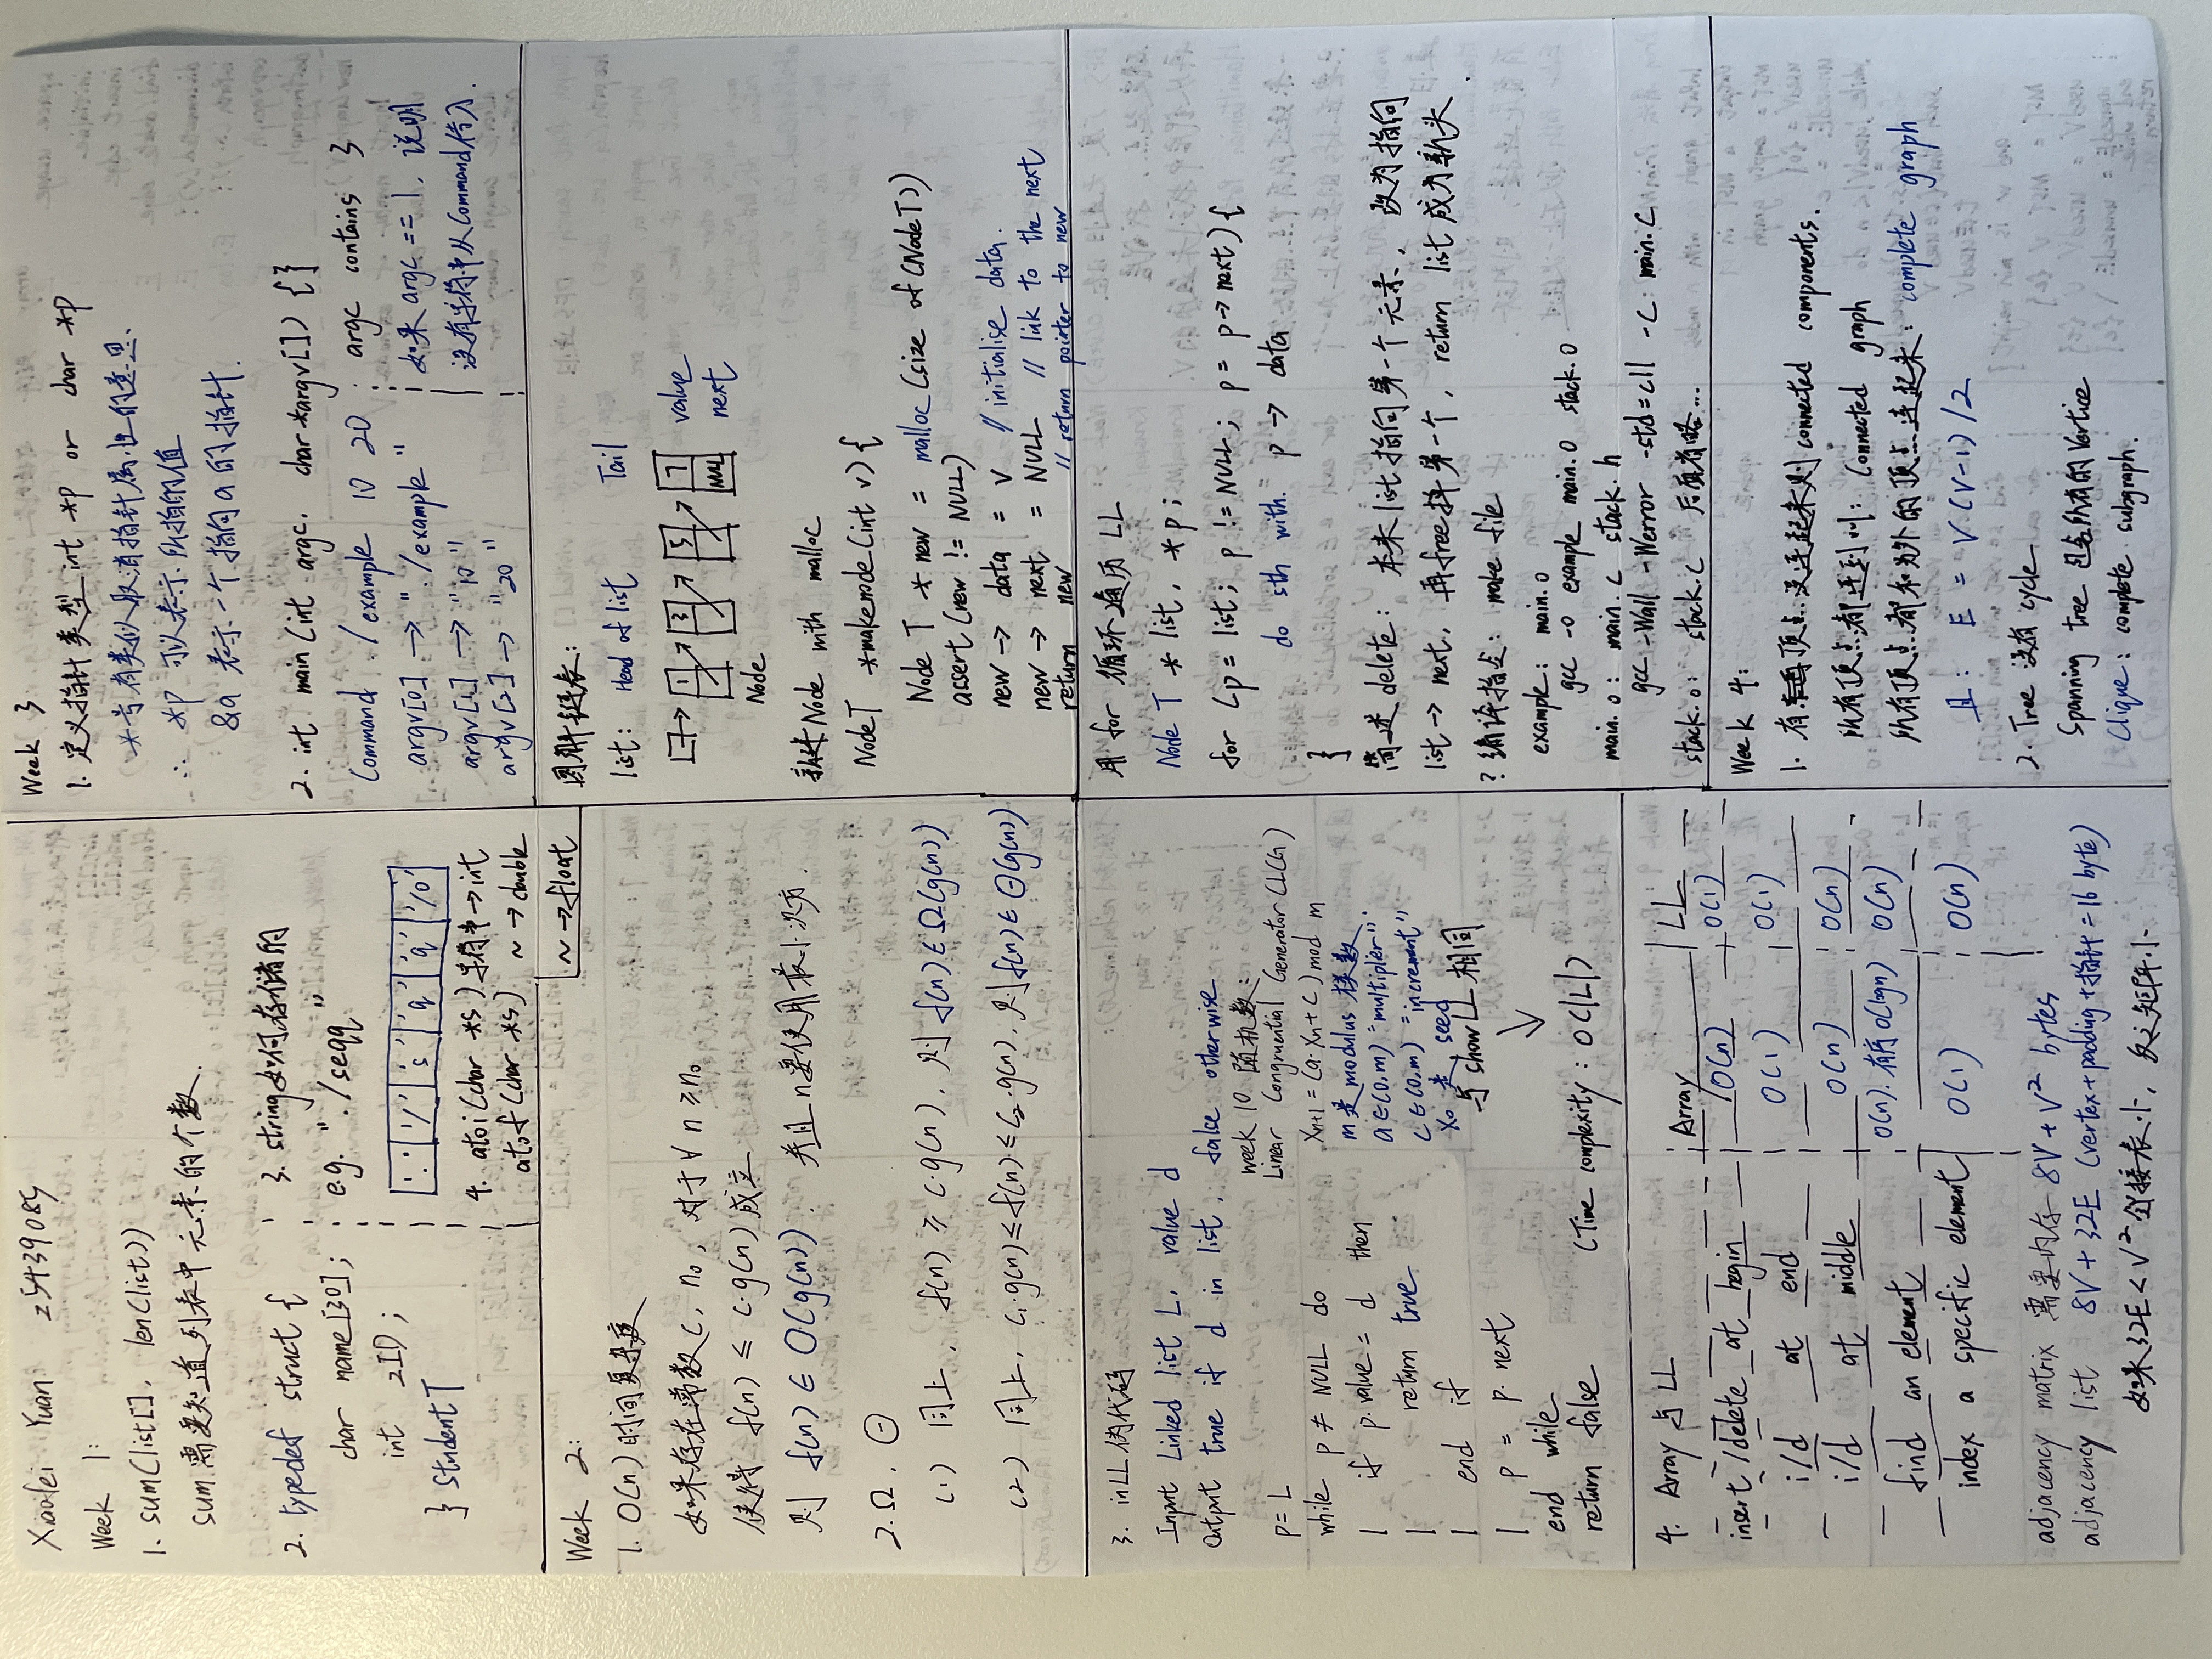 Xiaolei Yuan z5439089
Week 1:
1. sum(list[], len(list))
sum需要知道列表中元素的个数.
2. typedef struct {
char name[30];
int zID;
} studentT
3. string如何存储的
e.g. "./seqq"
'.' '/' 's' 'q' 'q' '/0'
4. atoi(char *s)字符串→int
atof(char *s) ~→double
~→float
Week 2:
1. O(n)时间复杂度
如果存在常数c, n₀, 对于∀ n ≥ n₀
使得 f(n) ≤ c·g(n)成立
则 f(n) ∈ O(g(n)). 并且n要使用最小次方.
2. Ω, Θ
(1) 同上, f(n) ≥ c·g(n), 则 f(n) ∈ Ω(g(n))
(2) 同上, c₁·g(n) ≤ f(n) ≤ c₂·g(n), 则f(n) ∈ Θ(g(n))
3. inLL伪代码
Input Linked list L, value d
Output true if d in list, false otherwise
p = L
while p ≠ NULL do
| if p.value = d then
| return true
| end if
| p = p.next
end while
return false
week 10. 随机数:
Linear Congruential Generator (LCG)
Xn+1 = (a·Xn + c) mod m
m是modulus 模数
a∈(0,m) "multiplier"
c∈(0,m) "increment"
X₀是 seed
与showLL相同
(Time complexity: O(|L|)
4. Array 与 LL
Array | LL
insert/delete at begin O(n) O(1)
i/d at end O(1) O(1)
i/d at middle O(n) O(n)
find an element O(n). 有序O(lgn) O(n)
index a specific element O(1) O(n)
adjacency matrix 需要内存 8V + V² bytes
adjacency list 8V + 32E (vertex+padding+指针=16 byte)
如果32E < V² 邻接表小, 反之矩阵小.
Week 3
1. 定义指针类型int *p or char *p
*号有类似取消指针属性的意思.
∴ *p 可以表示所指的值
&a 表示一个指向a的指针.
2. int main(int argc, char *argv[]) {}
Command ./example 10 20
argv[0] → "./example"
argv[1] → "10"
argv[2] → "20"
argc contains 3
如果 argc == 1, 说明
没有字符串从Command传入.
图解链表:
list: Head of list Tail
1 3 5 7 value
NULL next
Node
新建Node with malloc
NodeT *makenode(int v) {
NodeT *new = malloc(sizeof(NodeT))
assert(new != NULL)
new → data = v // initialise data.
new → next = NULL // link to the next
return new // return pointer to new
用 for 循环遍历 LL
NodeT *list, *p;
for (p = list; p != NULL; p = p → next) {
do sth with. p → data
}
简述delete: 本来list指向第一个元素, 改为指向
list → next, 再free掉第一个, return list成为新头.
? 编译指令: make file
example: main.o
gcc -o example main.o stack.o
main.o: main.c stack.h
gcc -Wall -Werror -std=c11 -c main.c
stack.o: stack.c 后面省略...
Week 4:
1. 有顶点没连起来则 connected components.
所有顶点都连到: Connected graph
所有顶点都和另外的顶点连起来: complete graph
且: E = V(V-1)/2
2. Tree 没有 cycle
Spanning tree 包含所有的Vertice
Clique: complete subgraph.